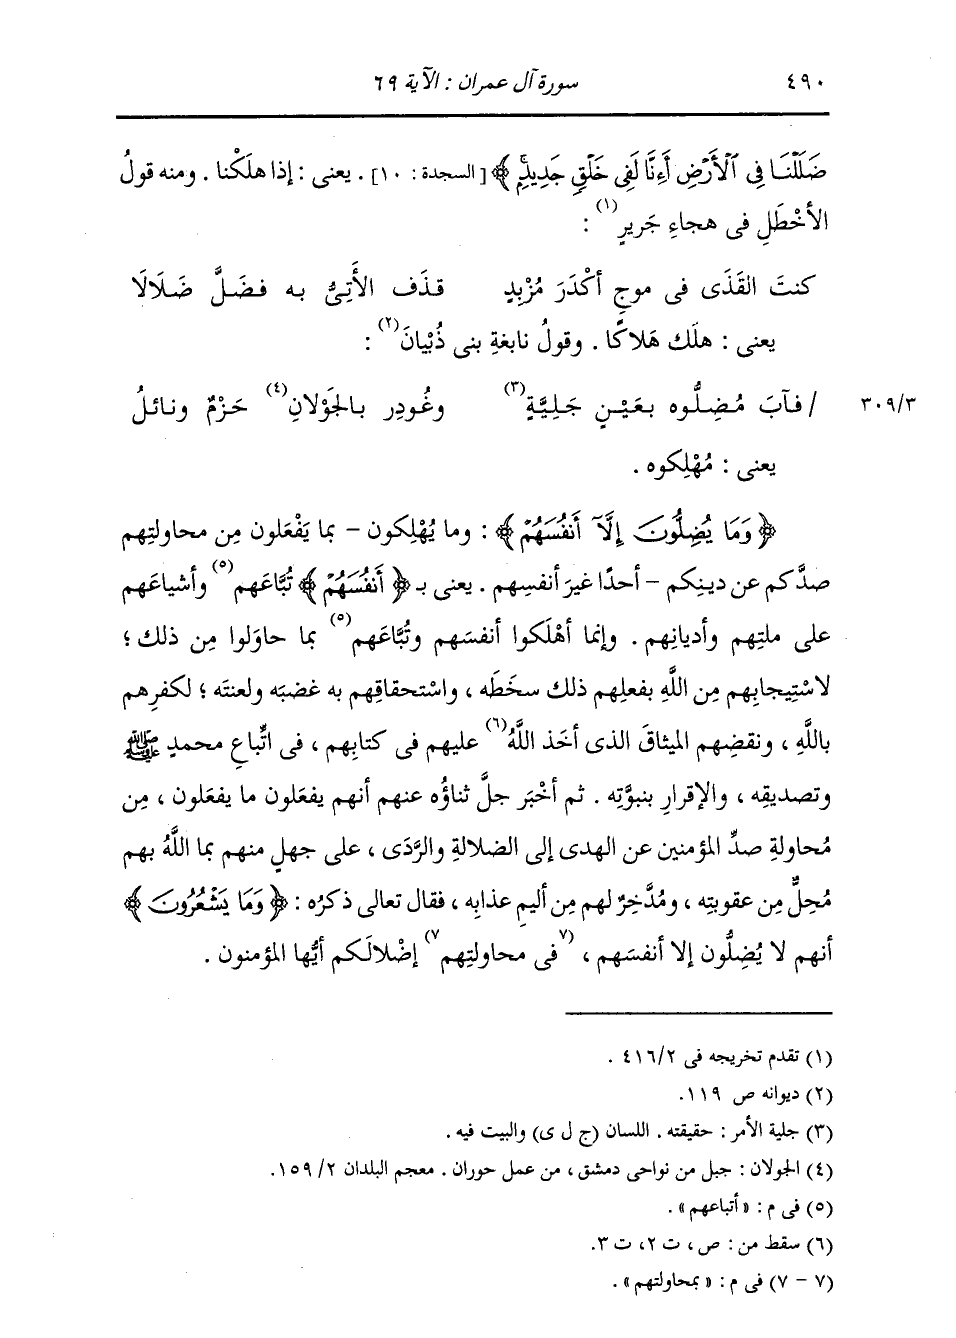 ٤٩٠ سورة آل عمران : الآية ٦٩
ضَلَلْنَا فِى ٱلْأَرْضِ أَءِنَّا لَفِى خَلْقٍ جَدِيدٍۭ ﴾ [ السجدة : ١٠] . يعنى : إذا هلَكْنا . ومنه قولُ
الأَخْطَلِ فى هجاءِ جَريرٍ(١) :
كنتَ القَذَى فى موجِ أَكْدَرَ مُزْبِدٍ قذَف الأَتِىُّ به فضَلَّ ضَلَالَا
يعنى : هلَك هَلَاكًا . وقولُ نابغةِ بنى ذُبْيانَ(٢) :
٣٠٩/٣ / فآبَ مُضِلُّوه بعَيْنٍ جَلِيَّةٍ(٣) وغُودِر بالجَوْلانِ(٤) حَزْمٌ ونائلُ
يعنى : مُهْلِكوه .
﴿ وَمَا يُضِلُّونَ إِلَّآ أَنفُسَهُمْ ﴾ : وما يُهْلِكون – بما يَفْعَلون مِن محاولتِهم
صدَّكم عن دينِكم – أحدًا غيرَ أنفسِهم . يعنى بـ ﴿ أَنفُسَهُمْ ﴾ تُبَّاعَهم(٥) وأشياعَهم
على ملتِهم وأديانِهم . وإنما أَهْلَكوا أنفسَهم وتُبَّاعَهم(٥) بما حاوَلوا مِن ذلك ؛
لاسْتِيجابِهم مِن اللَّهِ بفعلِهم ذلك سخَطَه ، واسْتحقاقِهم به غضبَه ولعنتَه ؛ لكفرِهم
باللَّهِ ، ونقضِهم الميثاقَ الذى أخَذ اللَّهُ(٦) عليهم فى كتابِهم ، فى اتِّباعِ محمدٍ ﷺ
وتصديقِه ، والإقرارِ بنبوَّتِه . ثم أَخْبَر جلَّ ثناؤُه عنهم أنهم يفعَلون ما يفعَلون ، مِن
مُحاولةِ صدِّ المؤمنين عن الهدى إلى الضلالةِ والرَّدَى ، على جهلٍ منهم بما اللَّهُ بهم
مُحِلٌّ مِن عقوبتِه ، ومُدَّخِرٌ لهم مِن أليمِ عذابِه ، فقال تعالى ذكرُه : ﴿ وَمَا يَشْعُرُونَ ﴾
أنهم لا يُضِلُّون إلا أنفسَهم ، (٧فى محاولتِهم٧) إضْلالَكم أيُّها المؤمنون .
(١) تقدم تخريجه فى ٤١٦/٢ .
(٢) ديوانه ص ١١٩.
(٣) جلية الأمر : حقيقته . اللسان (ج ل ى) والبيت فيه .
(٤) الجولان : جبل من نواحى دمشق ، من عمل حوران . معجم البلدان ١٥٩/٢.
(٥) فى م : « أتباعهم» .
(٦) سقط من : ص ، ت ٢، ت ٣.
(٧ – ٧) فى م : « بمحاولتهم» .